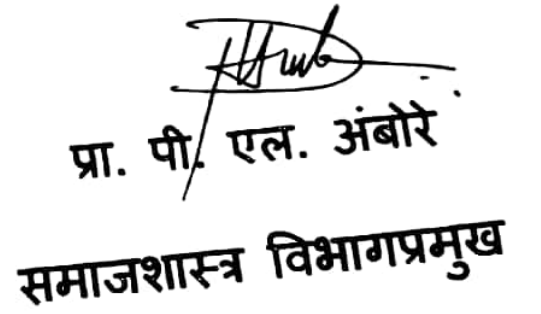 प्रा. पी. एल. अंबोरे
समाजशास्त्र विभागप्रमुख